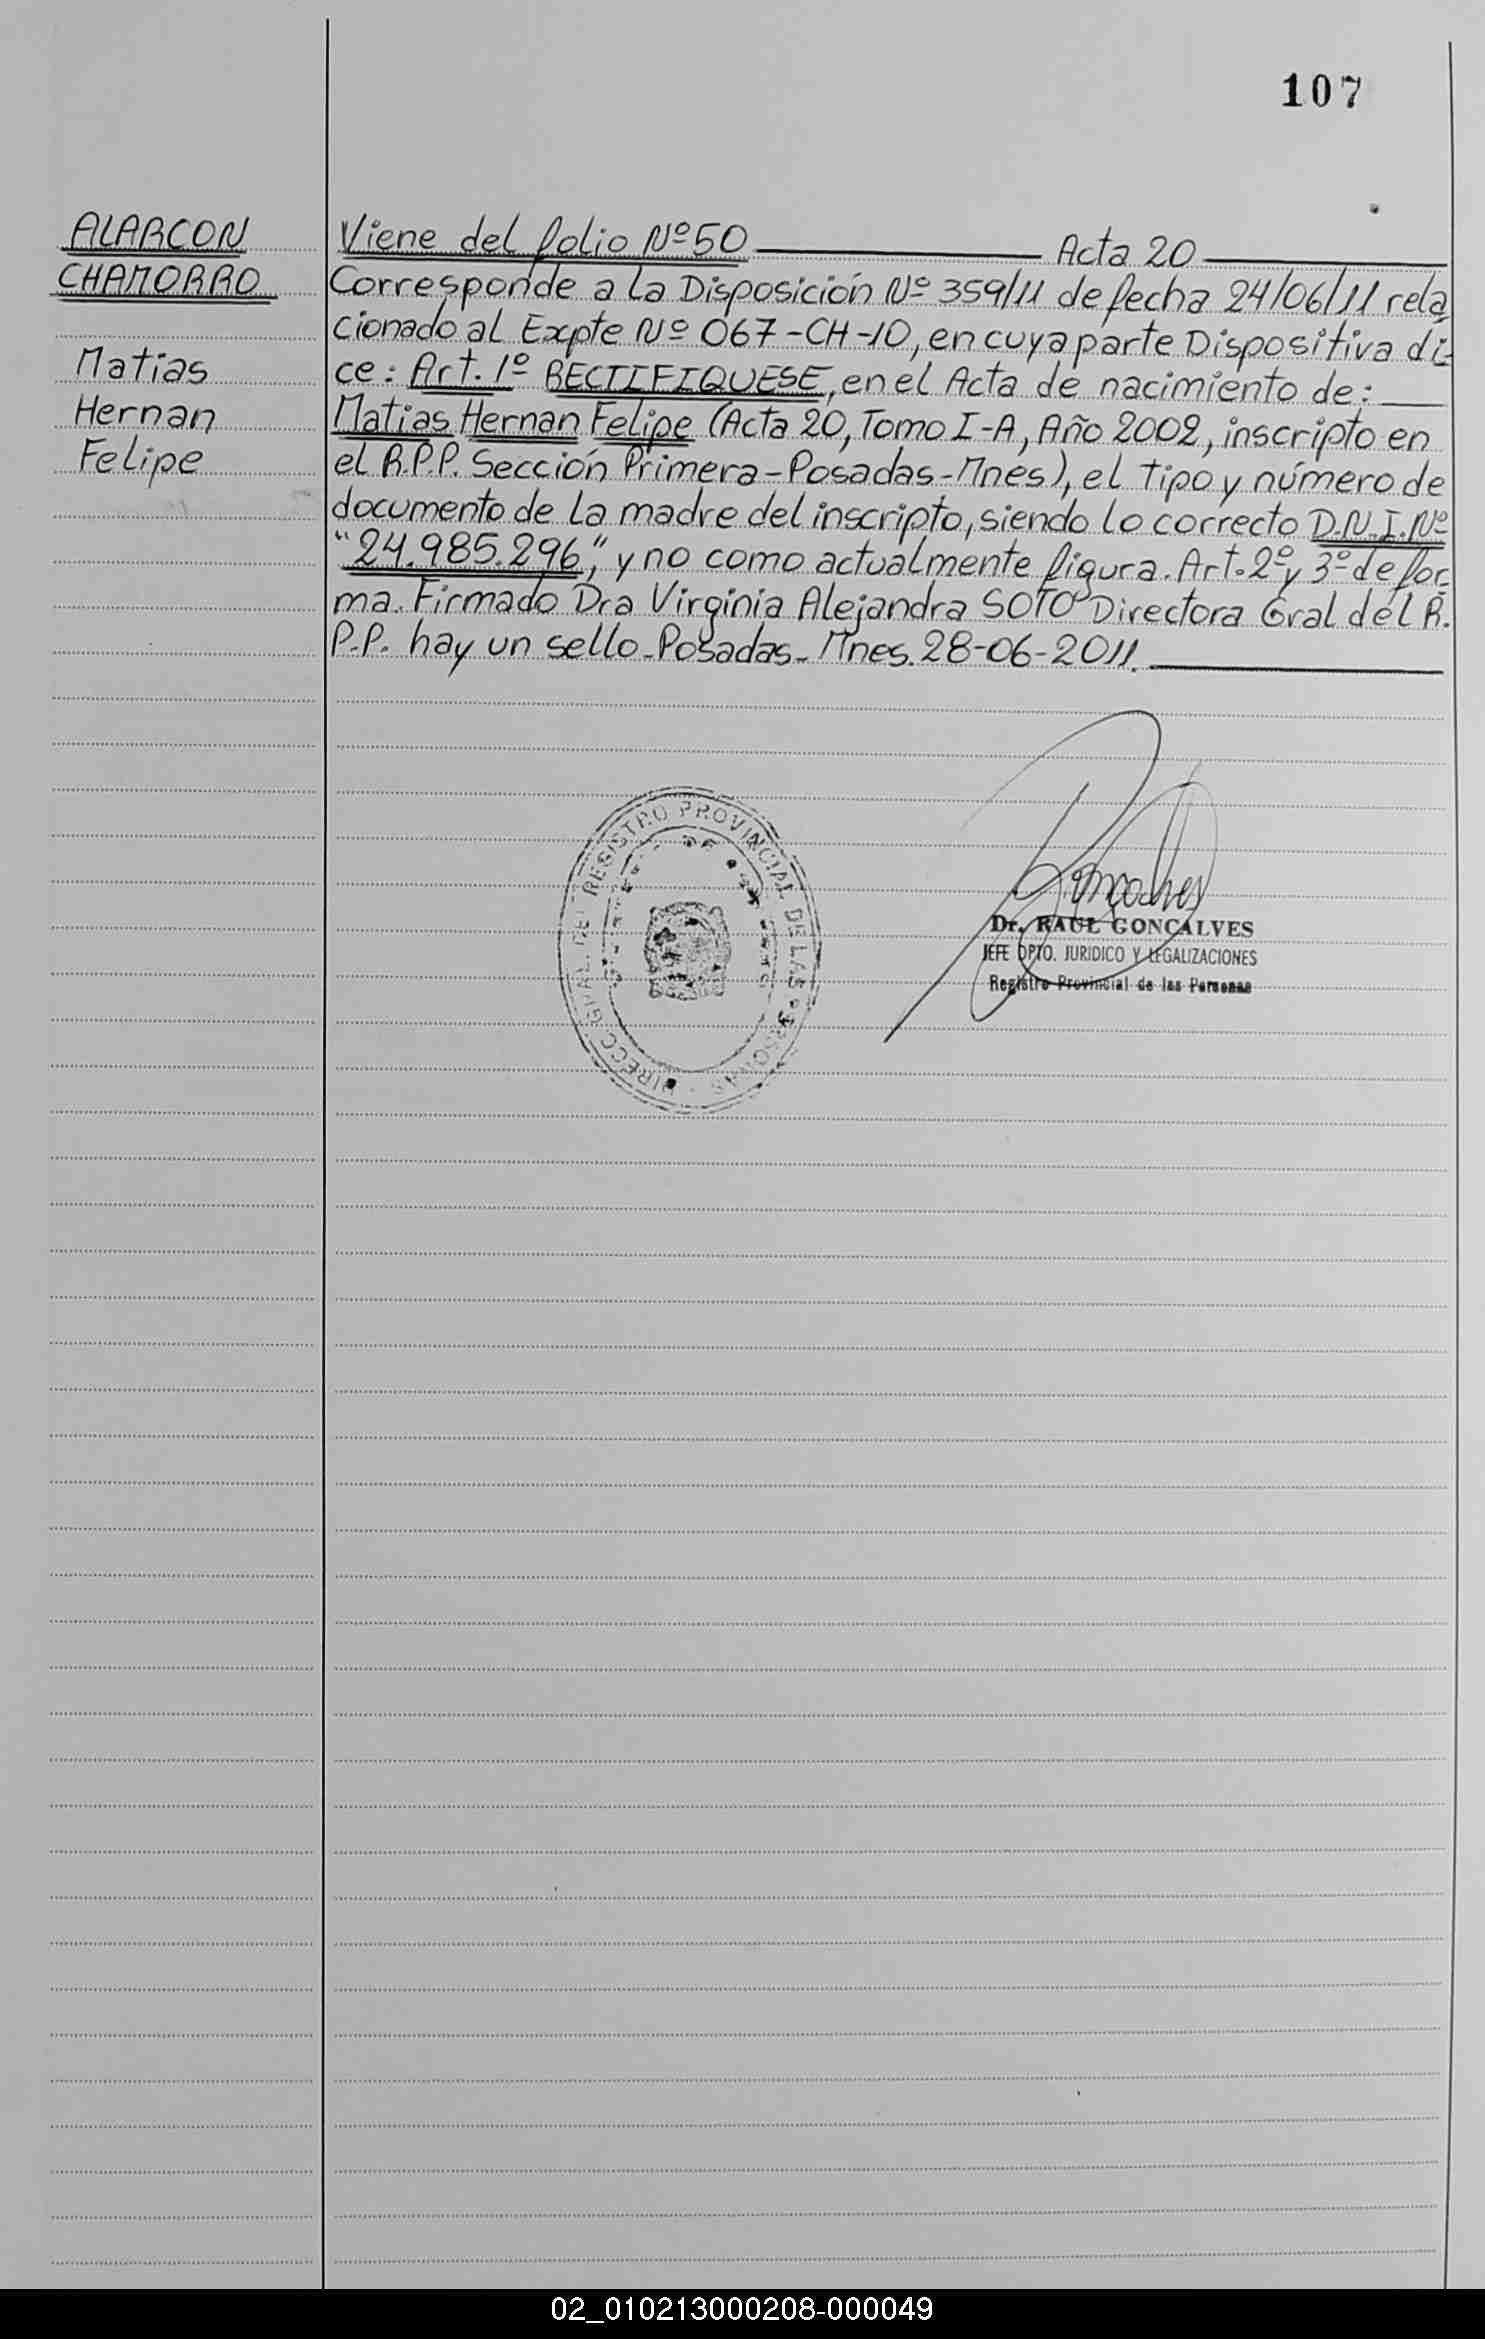 107
ALARCON
CHAMORRO
Matias
Hernan
Felipe
Viene del folio Nº 50 Acta 20
Corresponde a la Disposición Nº 359/11 de fecha 24/06/11 rela
cionado al Expte Nº 067-CH-10, en cuya parte Dispositiva di-
ce: Art. 1º RECTIFIQUESE, en el Acta de nacimiento de:
Matias Hernan Felipe (Acta 20, Tomo I-A, Año 2002, inscripto en
el R.P.P. Sección Primera-Posadas-Mnes), el tipo y número de
documento de la madre del inscripto, siendo lo correcto D.N.I. Nº
"24.985.296," y no como actualmente figura. Art. 2º y 3º de for-
ma. Firmado Dra Virginia Alejandra SOTO Directora Gral del R.
P.P. hay un sello-Posadas-Mnes. 28-06-2011.
DIRECC. GRAL. DEL REGISTRO PROVINCIAL DE LAS PERSONAS
Goncalves
Dr. RAUL GONCALVES
JEFE DPTO. JURIDICO Y LEGALIZACIONES
Registro Provincial de las Personas
02_010213000208-000049